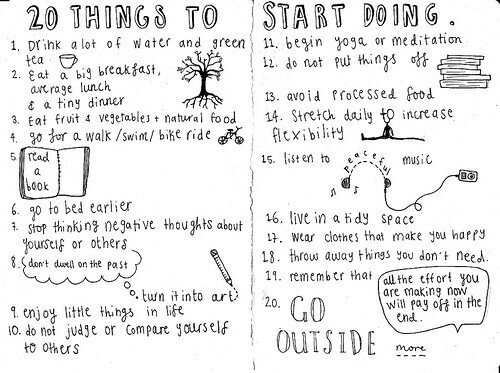 20 THINGS TO
1. Drink a lot of water and green
tea
2. Eat a big breakfast,
average lunch
& a tiny dinner
3. Eat fruit & vegetables + natural food
4. go for a walk/swim/bike ride
5. read
a
book
6. go to bed earlier
7. stop thinking negative thoughts about
yourself or others
8. don't dwell on the past
turn it into art.
9. enjoy little things in life
10. do not judge or compare yourself
to others
START DOING.
11. begin yoga or meditation
12. do not put things off
13. avoid processed food
14. Stretch daily to increase
flexibility
15. listen to peaceful music
16. live in a tidy space
17. wear clothes that make you happy
18. throw away things you don't need.
19. remember that
all the effort you
are making now
will pay off in the
end.
20. GO
OUTSIDE more